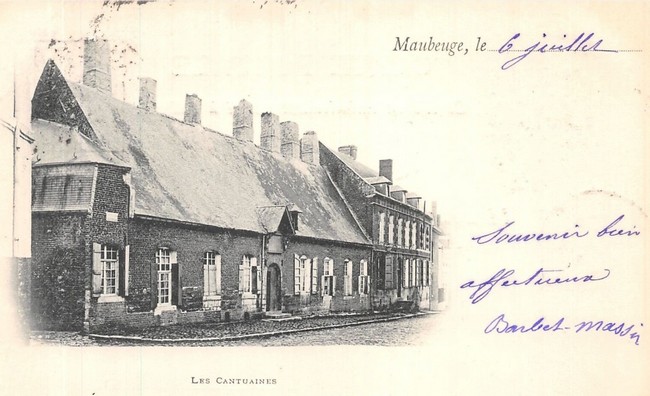 Maubeuge, le 6 juillet
Souvenir bien
affectueux
Barbet-Massin
LES CANTUAINES